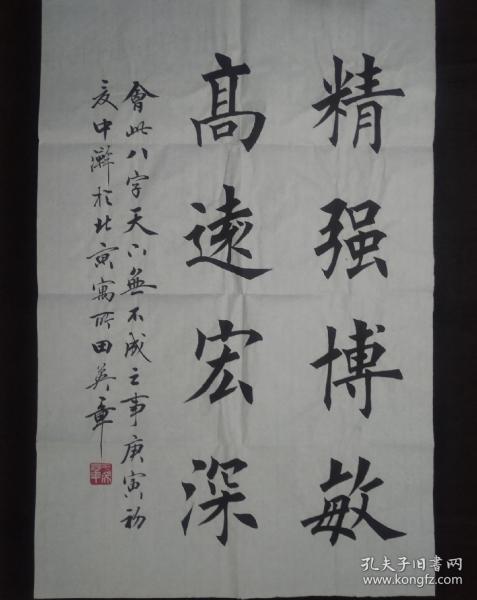 精强博敏
髙遠宏深
會此八字天下無不成之事庚寅初
夏中澣於北京寓所田英章
孔夫子旧书网
www.kongfz.com